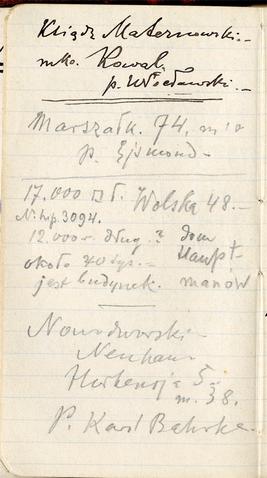 Ksiądz Maternowski.-
mko. Kowal.
p. Włocławski.-
Marszałk. 74, m. 10
p. Ejsmond-
17.000 zł. Wolska 48.-
N. hip. 3094.
12.000 - dług? dom
około 40 tys.- Haupt-
jest budynek. manów
Nowodworski-
Neuhaus
Hortensja 5-
m. 38.
P. Karl Bahrke-